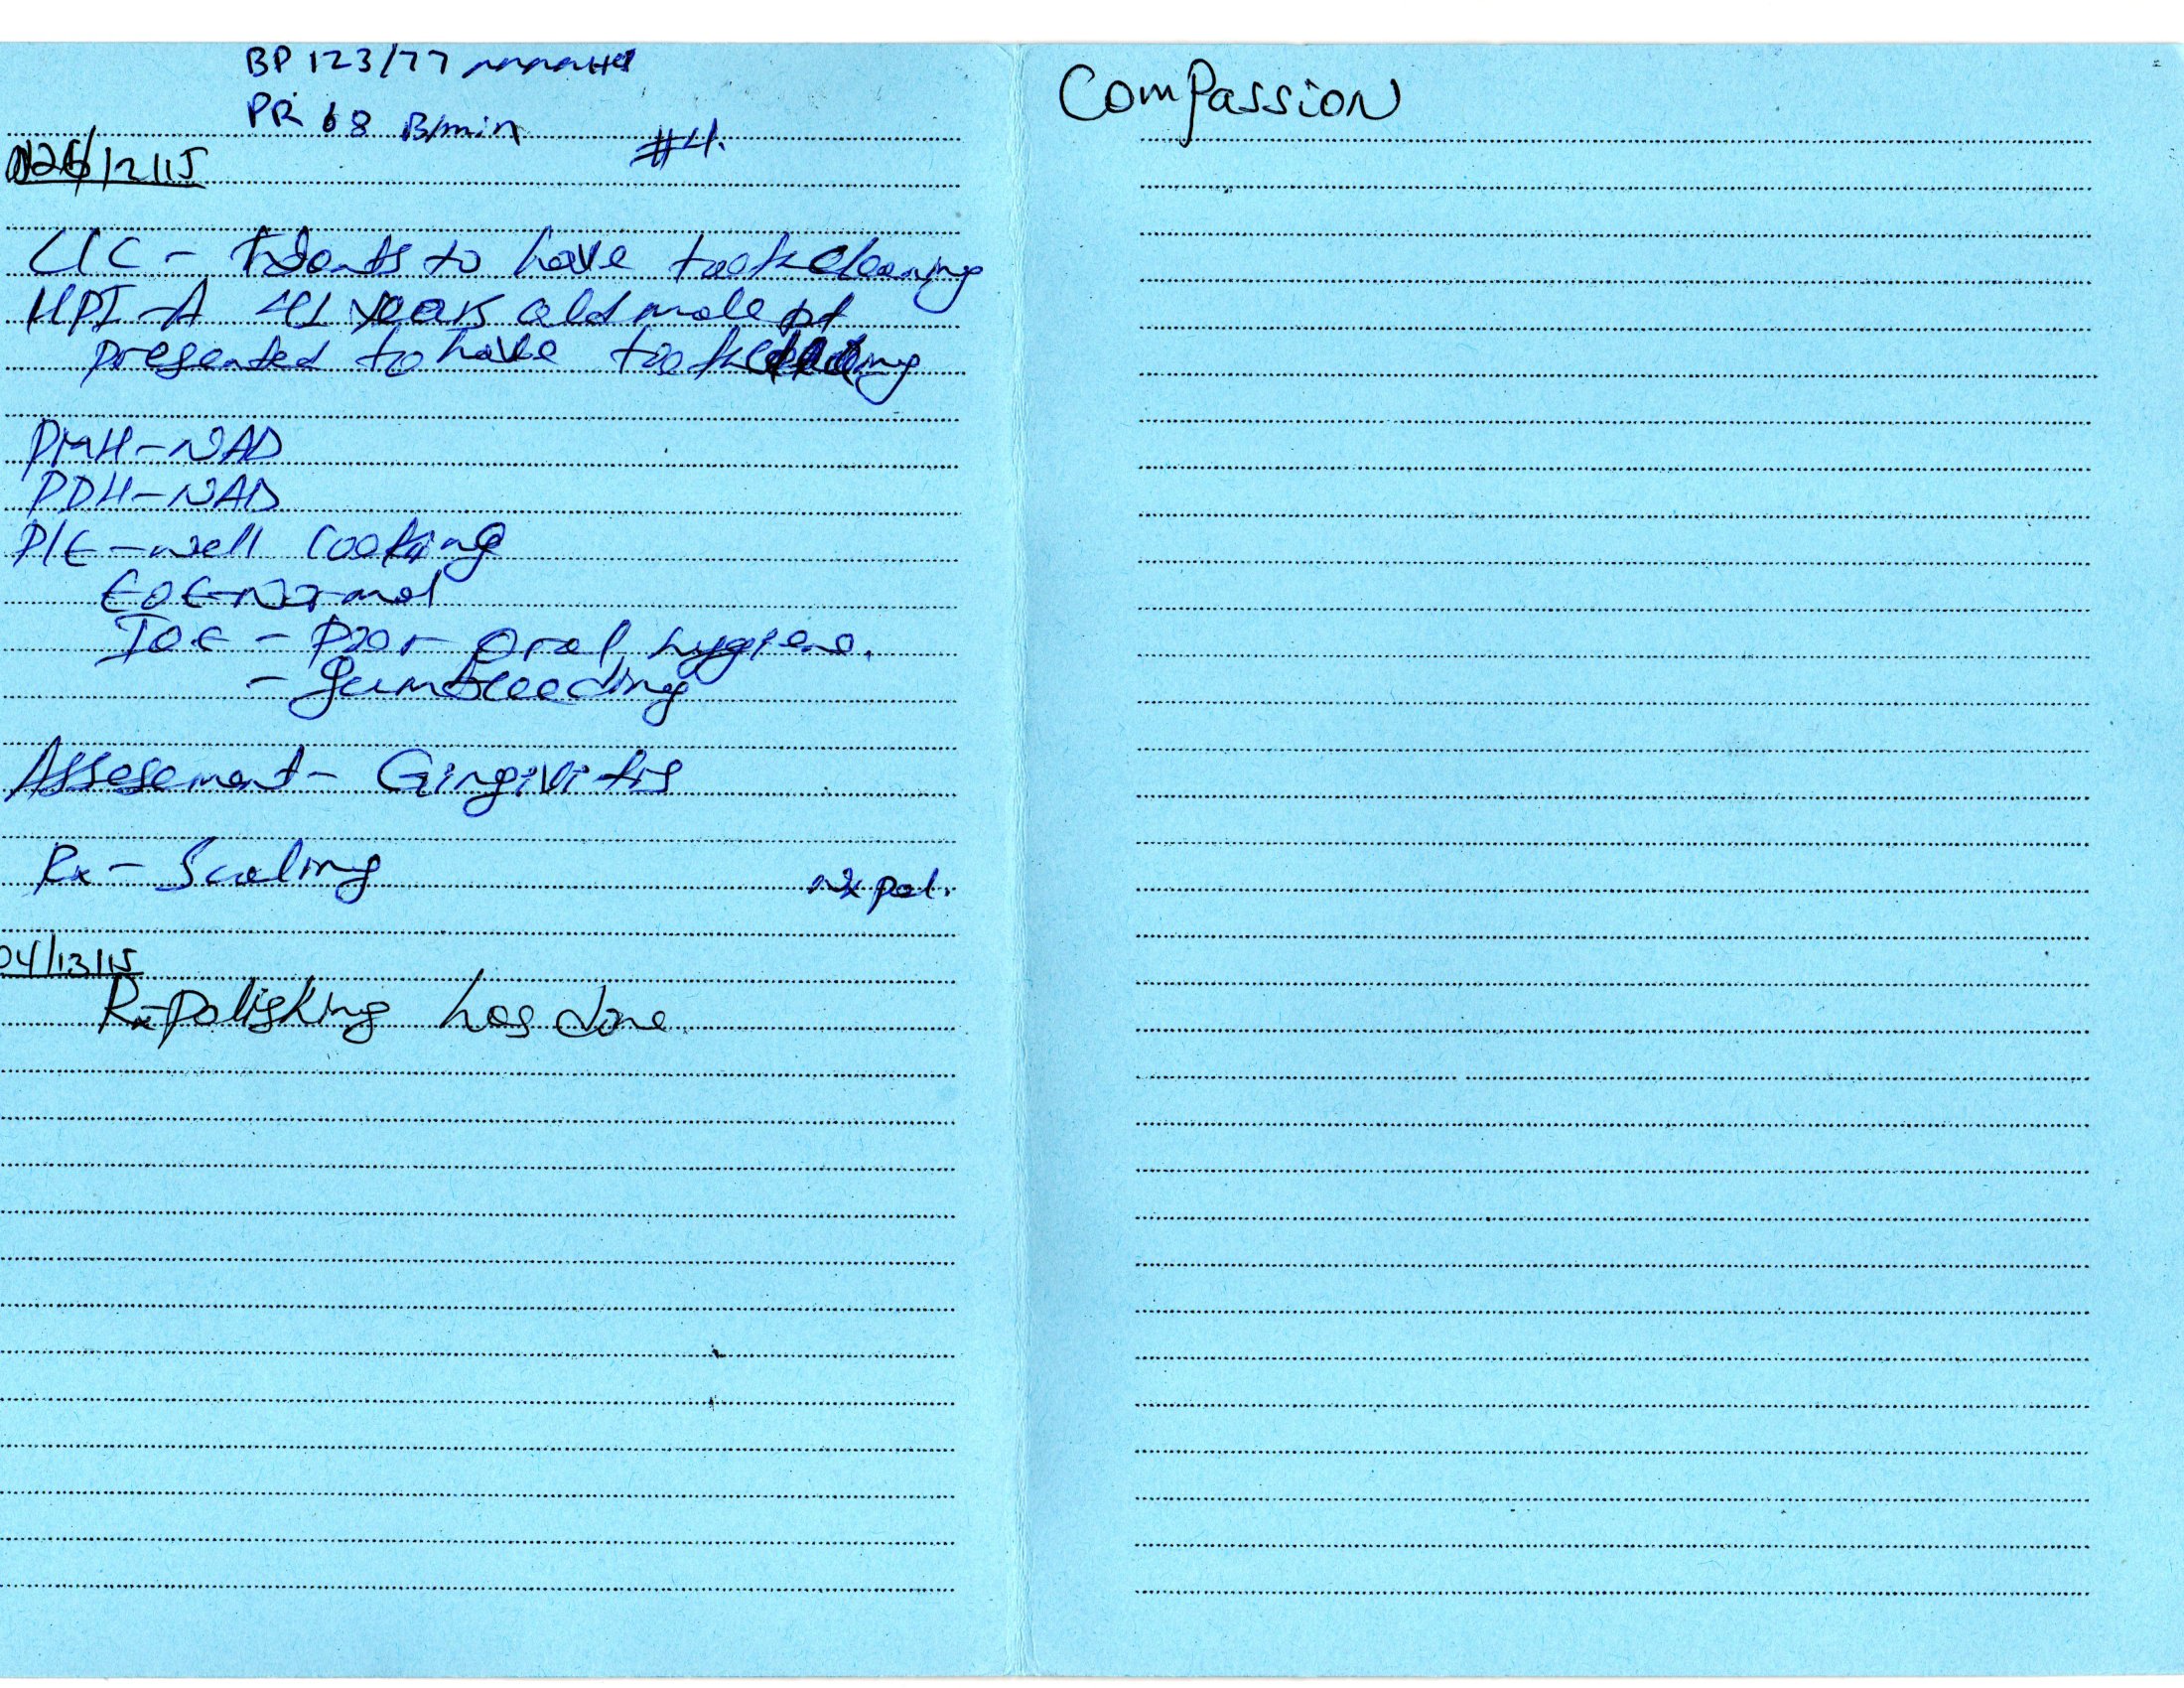 BP 123/77 mmHg
PR 68 B/min
#4.
26/12/15
C/C - Wants to have tooth cleaning
HPI - A 41 years old male pt
presented to have tooth cleaning
PMH - NAD
PDH - NAD
P/E - well looking
EOE - Normal
IOE - Poor oral hygiene.
- gum bleeding
Assesement - Gingivitis
Rx - Scaling
nx pol.
04/13/15
Rx - polishing has done
Compassion